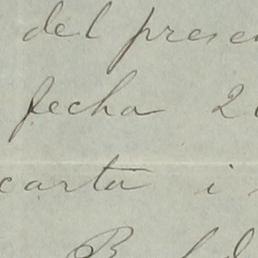 del presen
fecha 2
carta i
B